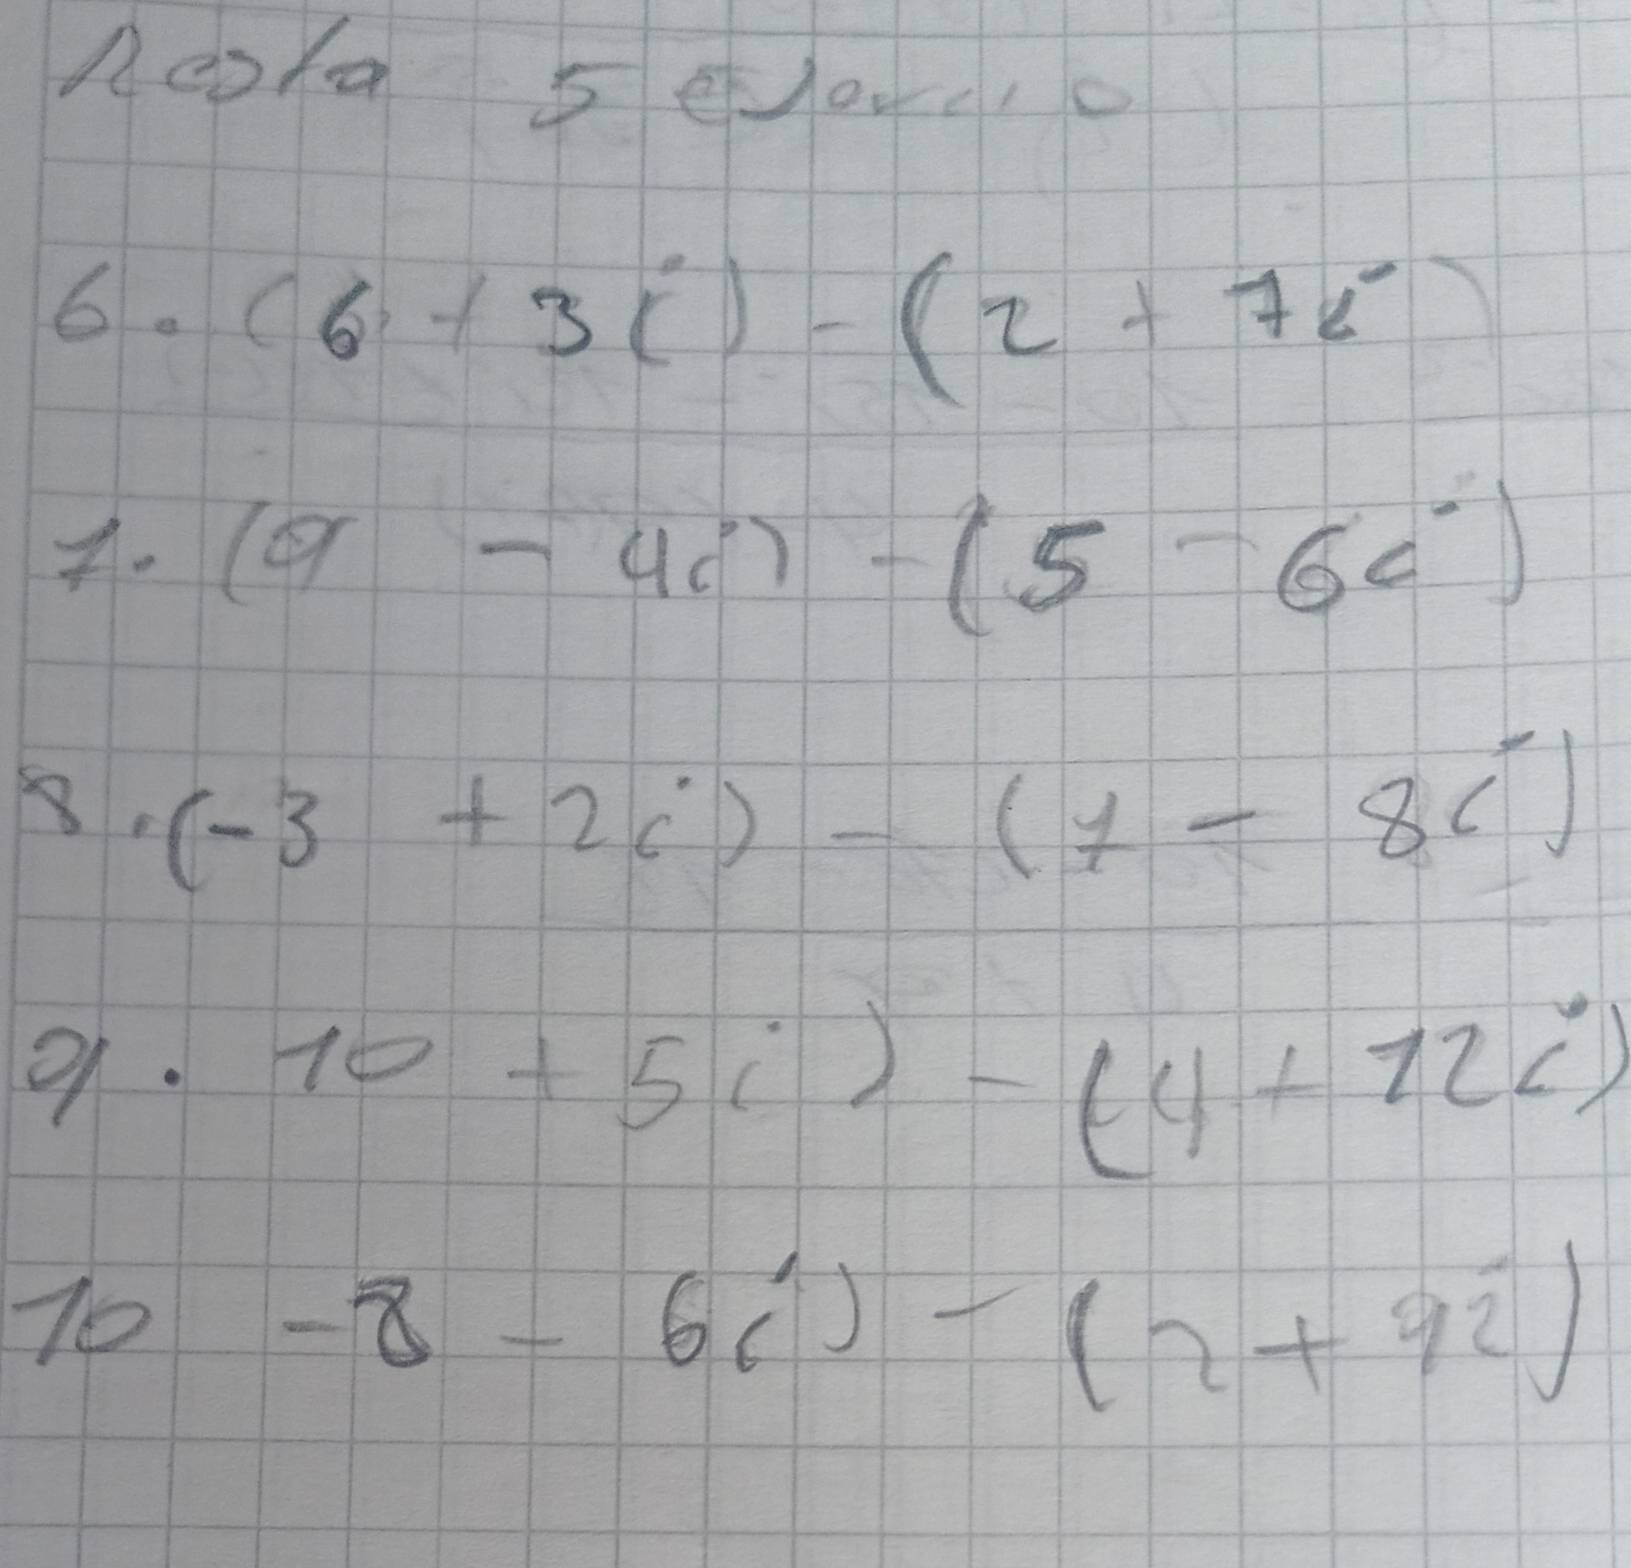 Resta 5 ejercicio
6. (6 + 3i) - (2 + 7i)
7. (9 - 4i) - (5 - 6i)
8. (-3 + 2i) - (7 - 8i)
9. 10 + 5i) - (4 + 12i)
10 -8 - 6i) - (2 + 9i)